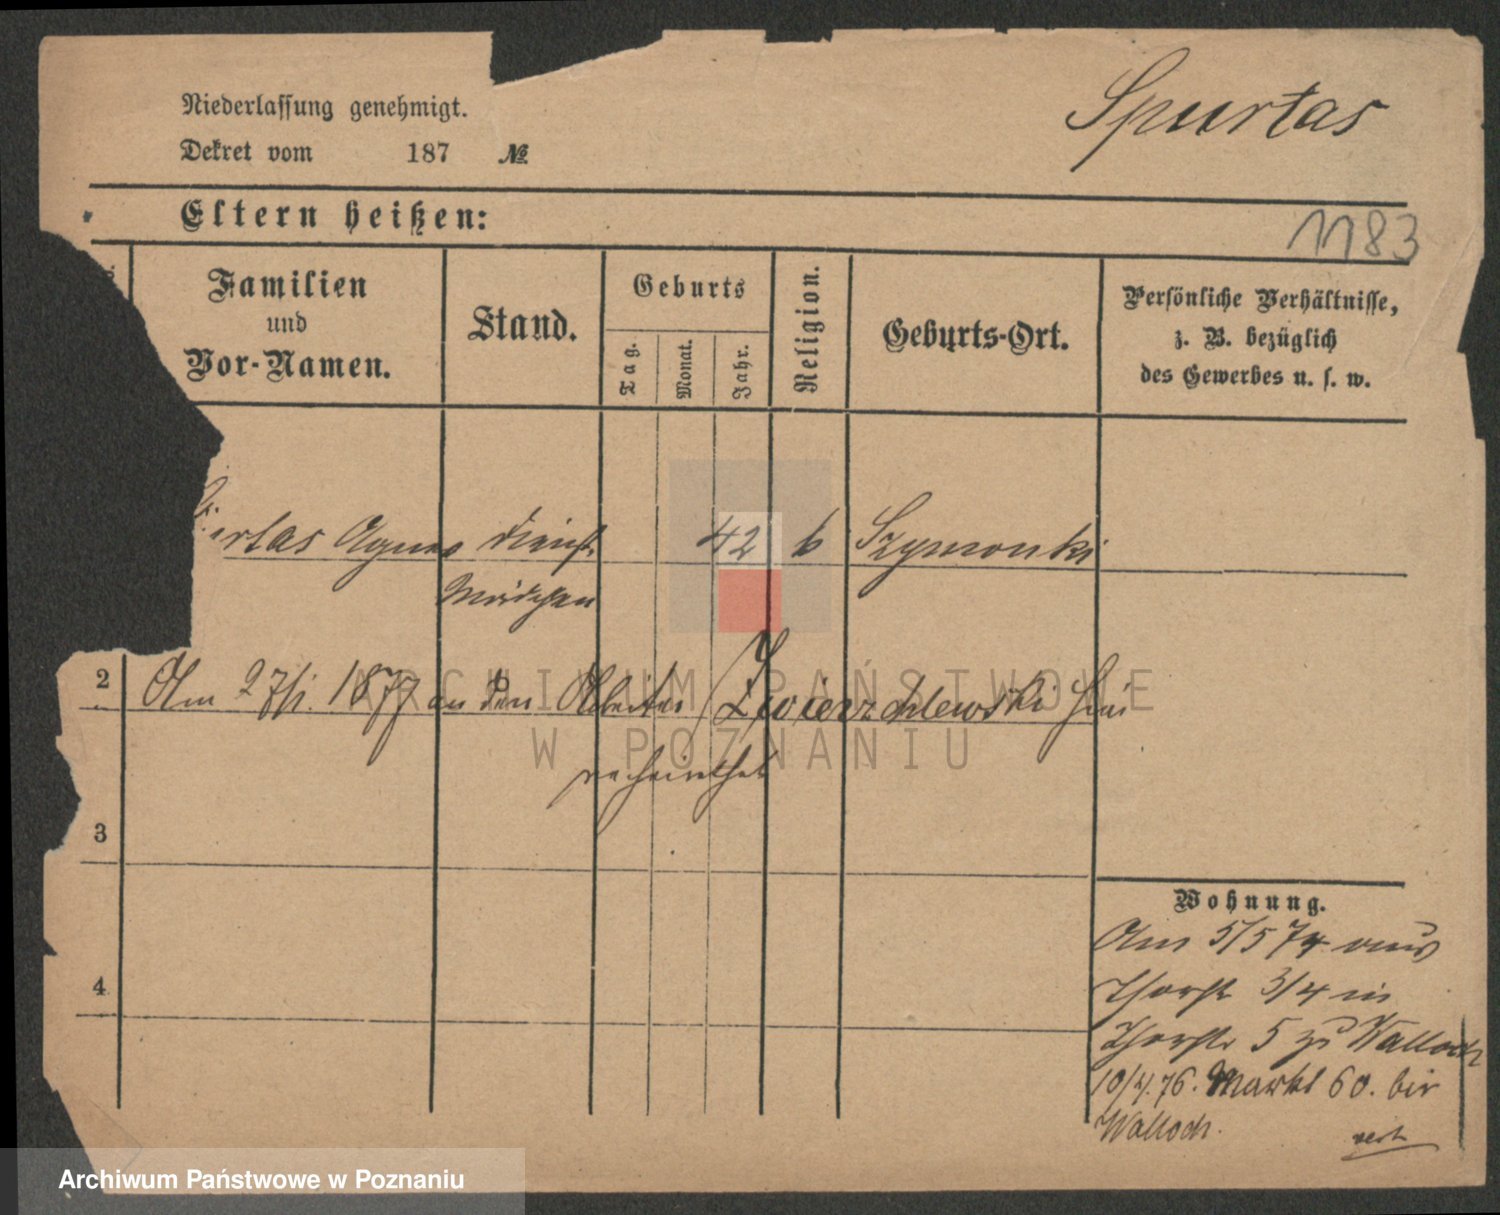 Niederlassung genehmigt.
Dekret vom 187 №
Spurtas
Eltern heißen:
1183
Familien
und
Vor-Namen.
Stand.
Geburts
Tag.
Monat.
Jahr.
Religion.
Geburts-Ort.
Persönliche Verhältnisse,
z. B. bezüglich
des Gewerbes u. s. w.
urtas Agnes Dienst 42 k Szymonki
Mädchen
2 Am 27/1. 1877 an den Arbeiter Zwierzchlewski hier
verheirathet
3
4
Wohnung.
Am 5/5 74 aus
Thorstr 3/4 in
Thorstr 5 zu Walloch
10/4. 76. Markt 60. bei
Walloch.
vert
ARCHIWUM PAŃSTWOWE
W POZNANIU
Archiwum Państwowe w Poznaniu